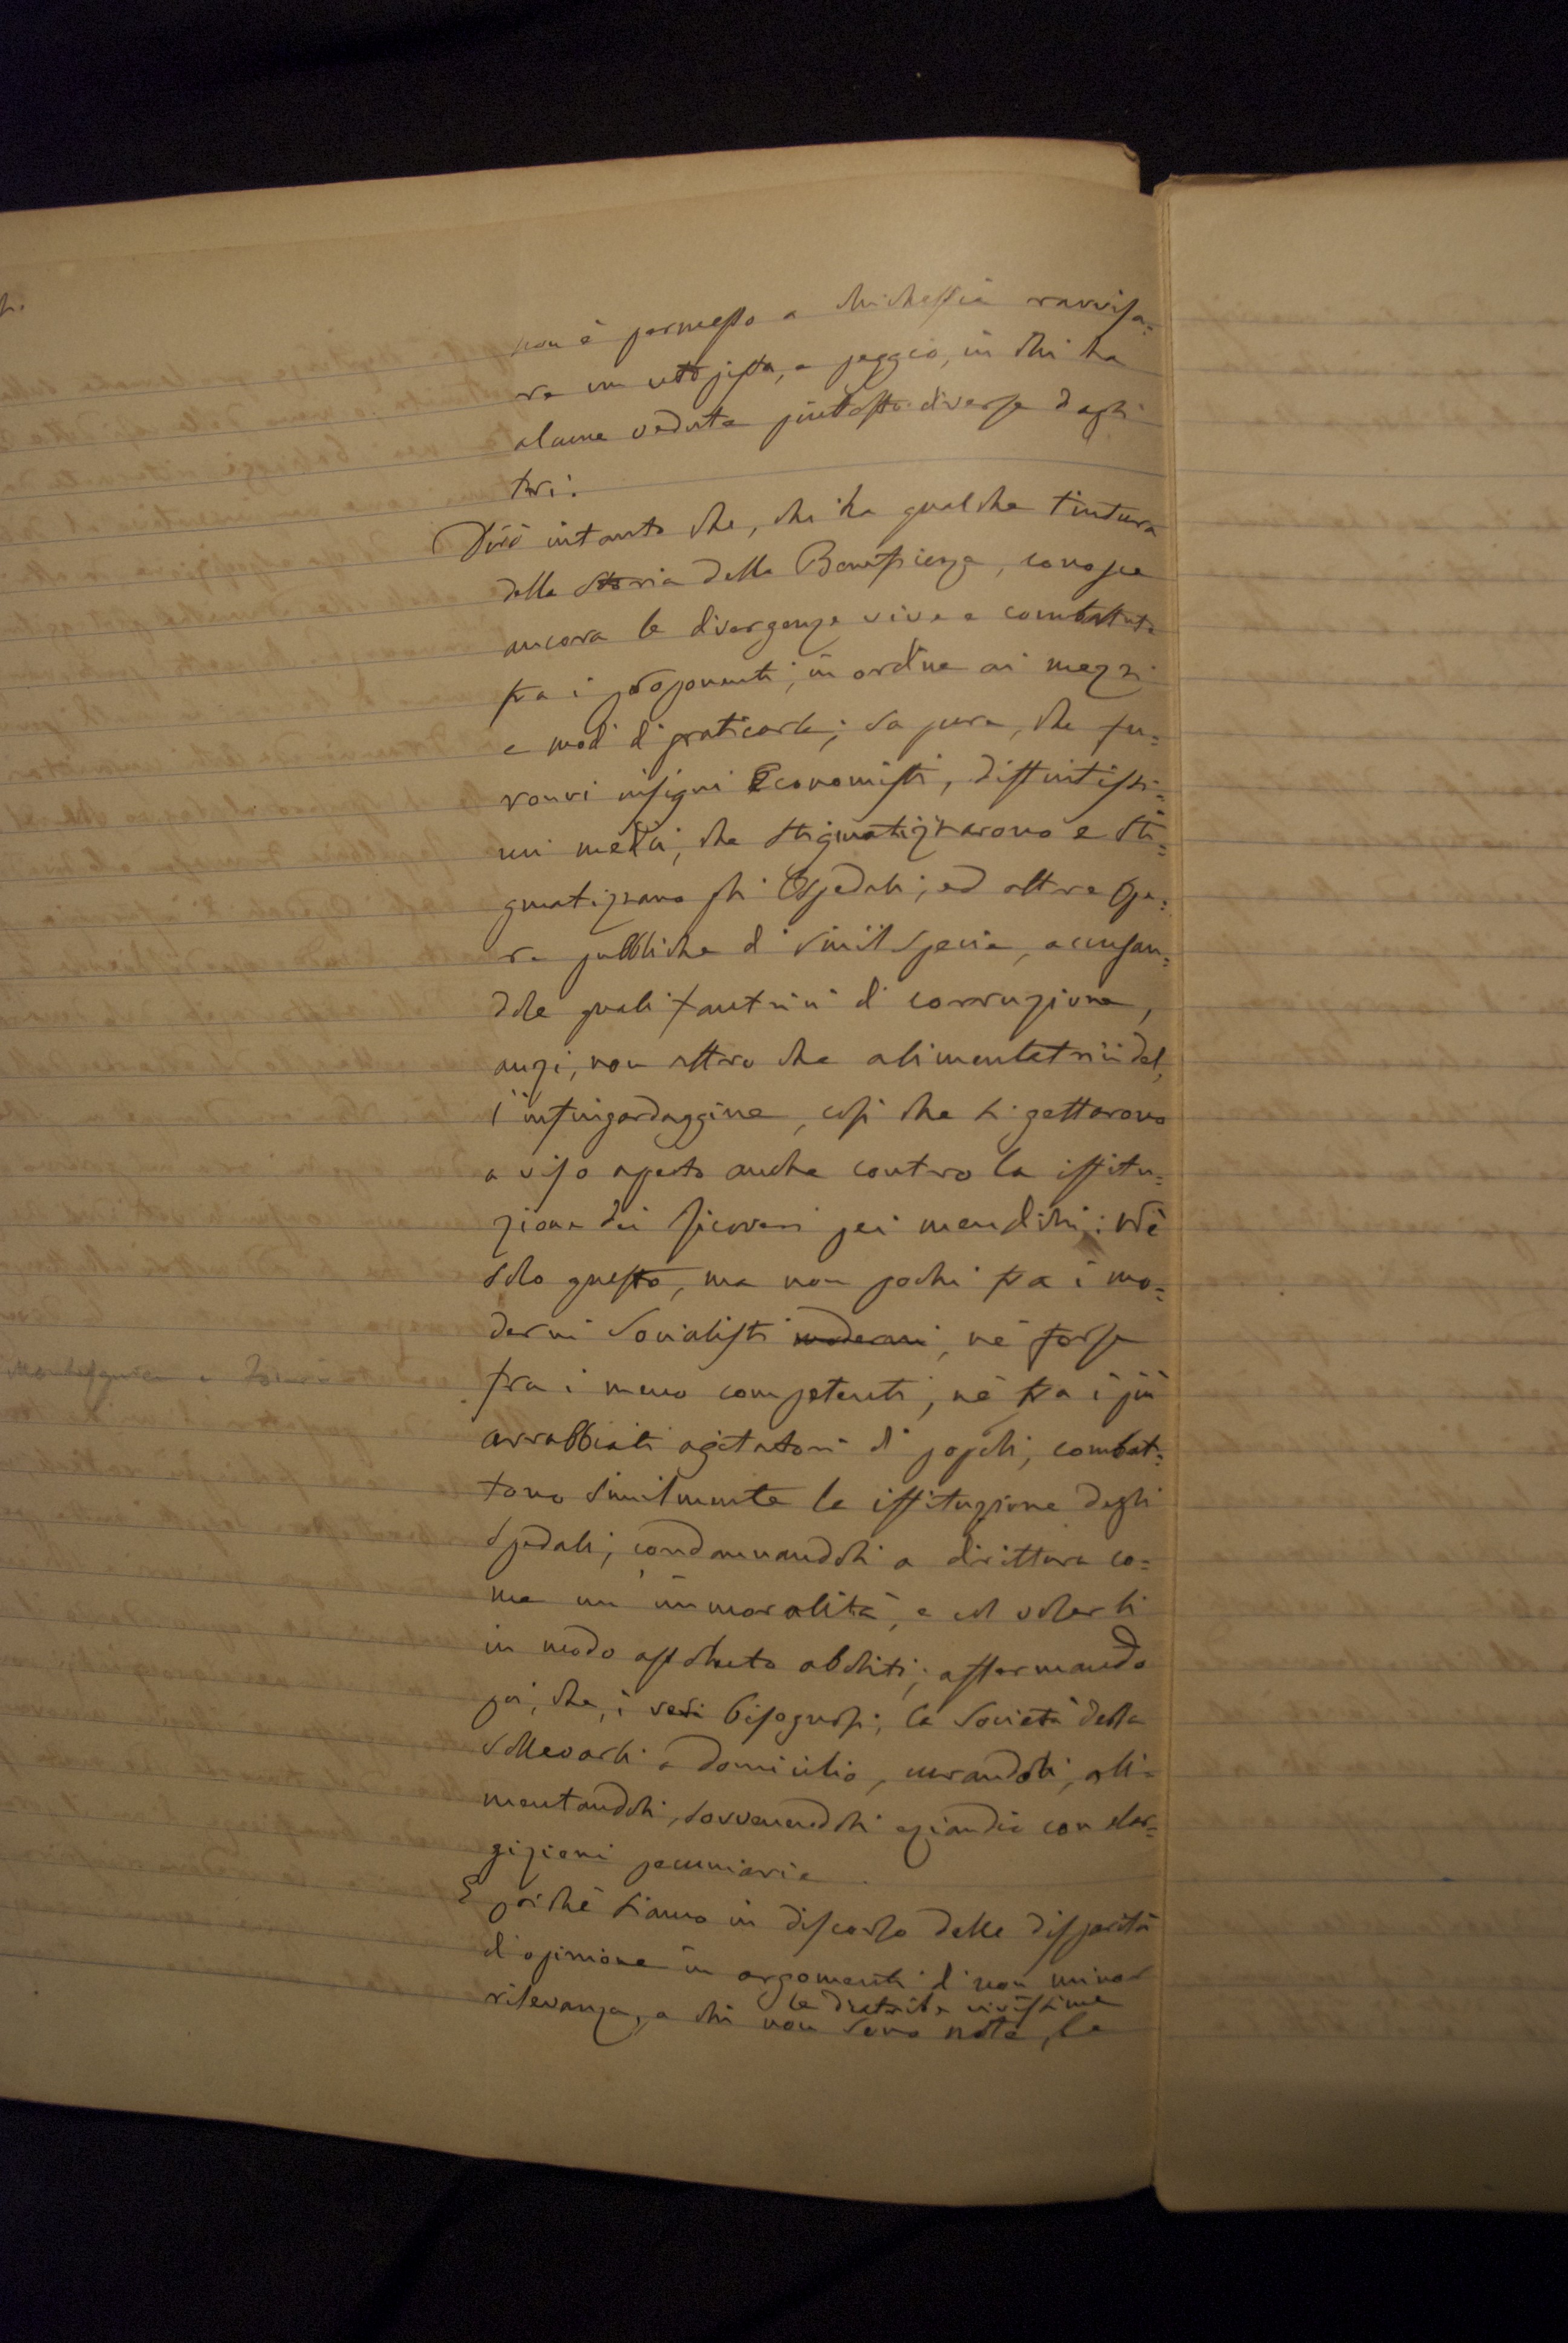 non è permesso a chichessia ravvisa=
re un utopista, o peggio, in chi ha
alcune vedute piuttosto diverse dagli
tri.
Dirò intanto che, chi ha qualche tintura
della storia della Beneficenza, conosce
ancora le divergenze vive e combattute
fra i proponenti, in ordine ai mezzi
e modi di praticarla; sa pure, che fu=
ronvi insigni Economisti, distintissi=
mi medici, che stigmatizzarono e sti=
gmatizzano gli Ospedali, ed altre Ope=
re pubbliche di simil specie, accusan=
dole quali fautrici di corruzione,
anzi, non altro che alimentatrici del,
l'infingardaggine, così che si gettarono
a viso aperto anche contro la istitu=
zione dei Ricoveri pei mendichi: Nè
solo questo, ma non pochi fra i mo=
derni Socialisti moderni, nè forse
fra i meno competenti, nè fra i più
arrabbiati agitatori di popoli, combat=
tono similmente la istituzione degli
Spedali, condannandoli a dirittura co=
me un'immoralità, e col volerli
in modo assoluto aboliti; affermando
poi, che, i veri bisognosi, la Società debba
sollevarli a domicilio, curandoli, ali=
mentandoli, sovvenendoli eziandio con elar=
gizioni pecuniarie
E poichè siamo in discorso delle disparità
di opinione in argomenti di non minor
le diatribe vivissime
rilevanza, a chi non sono note, le